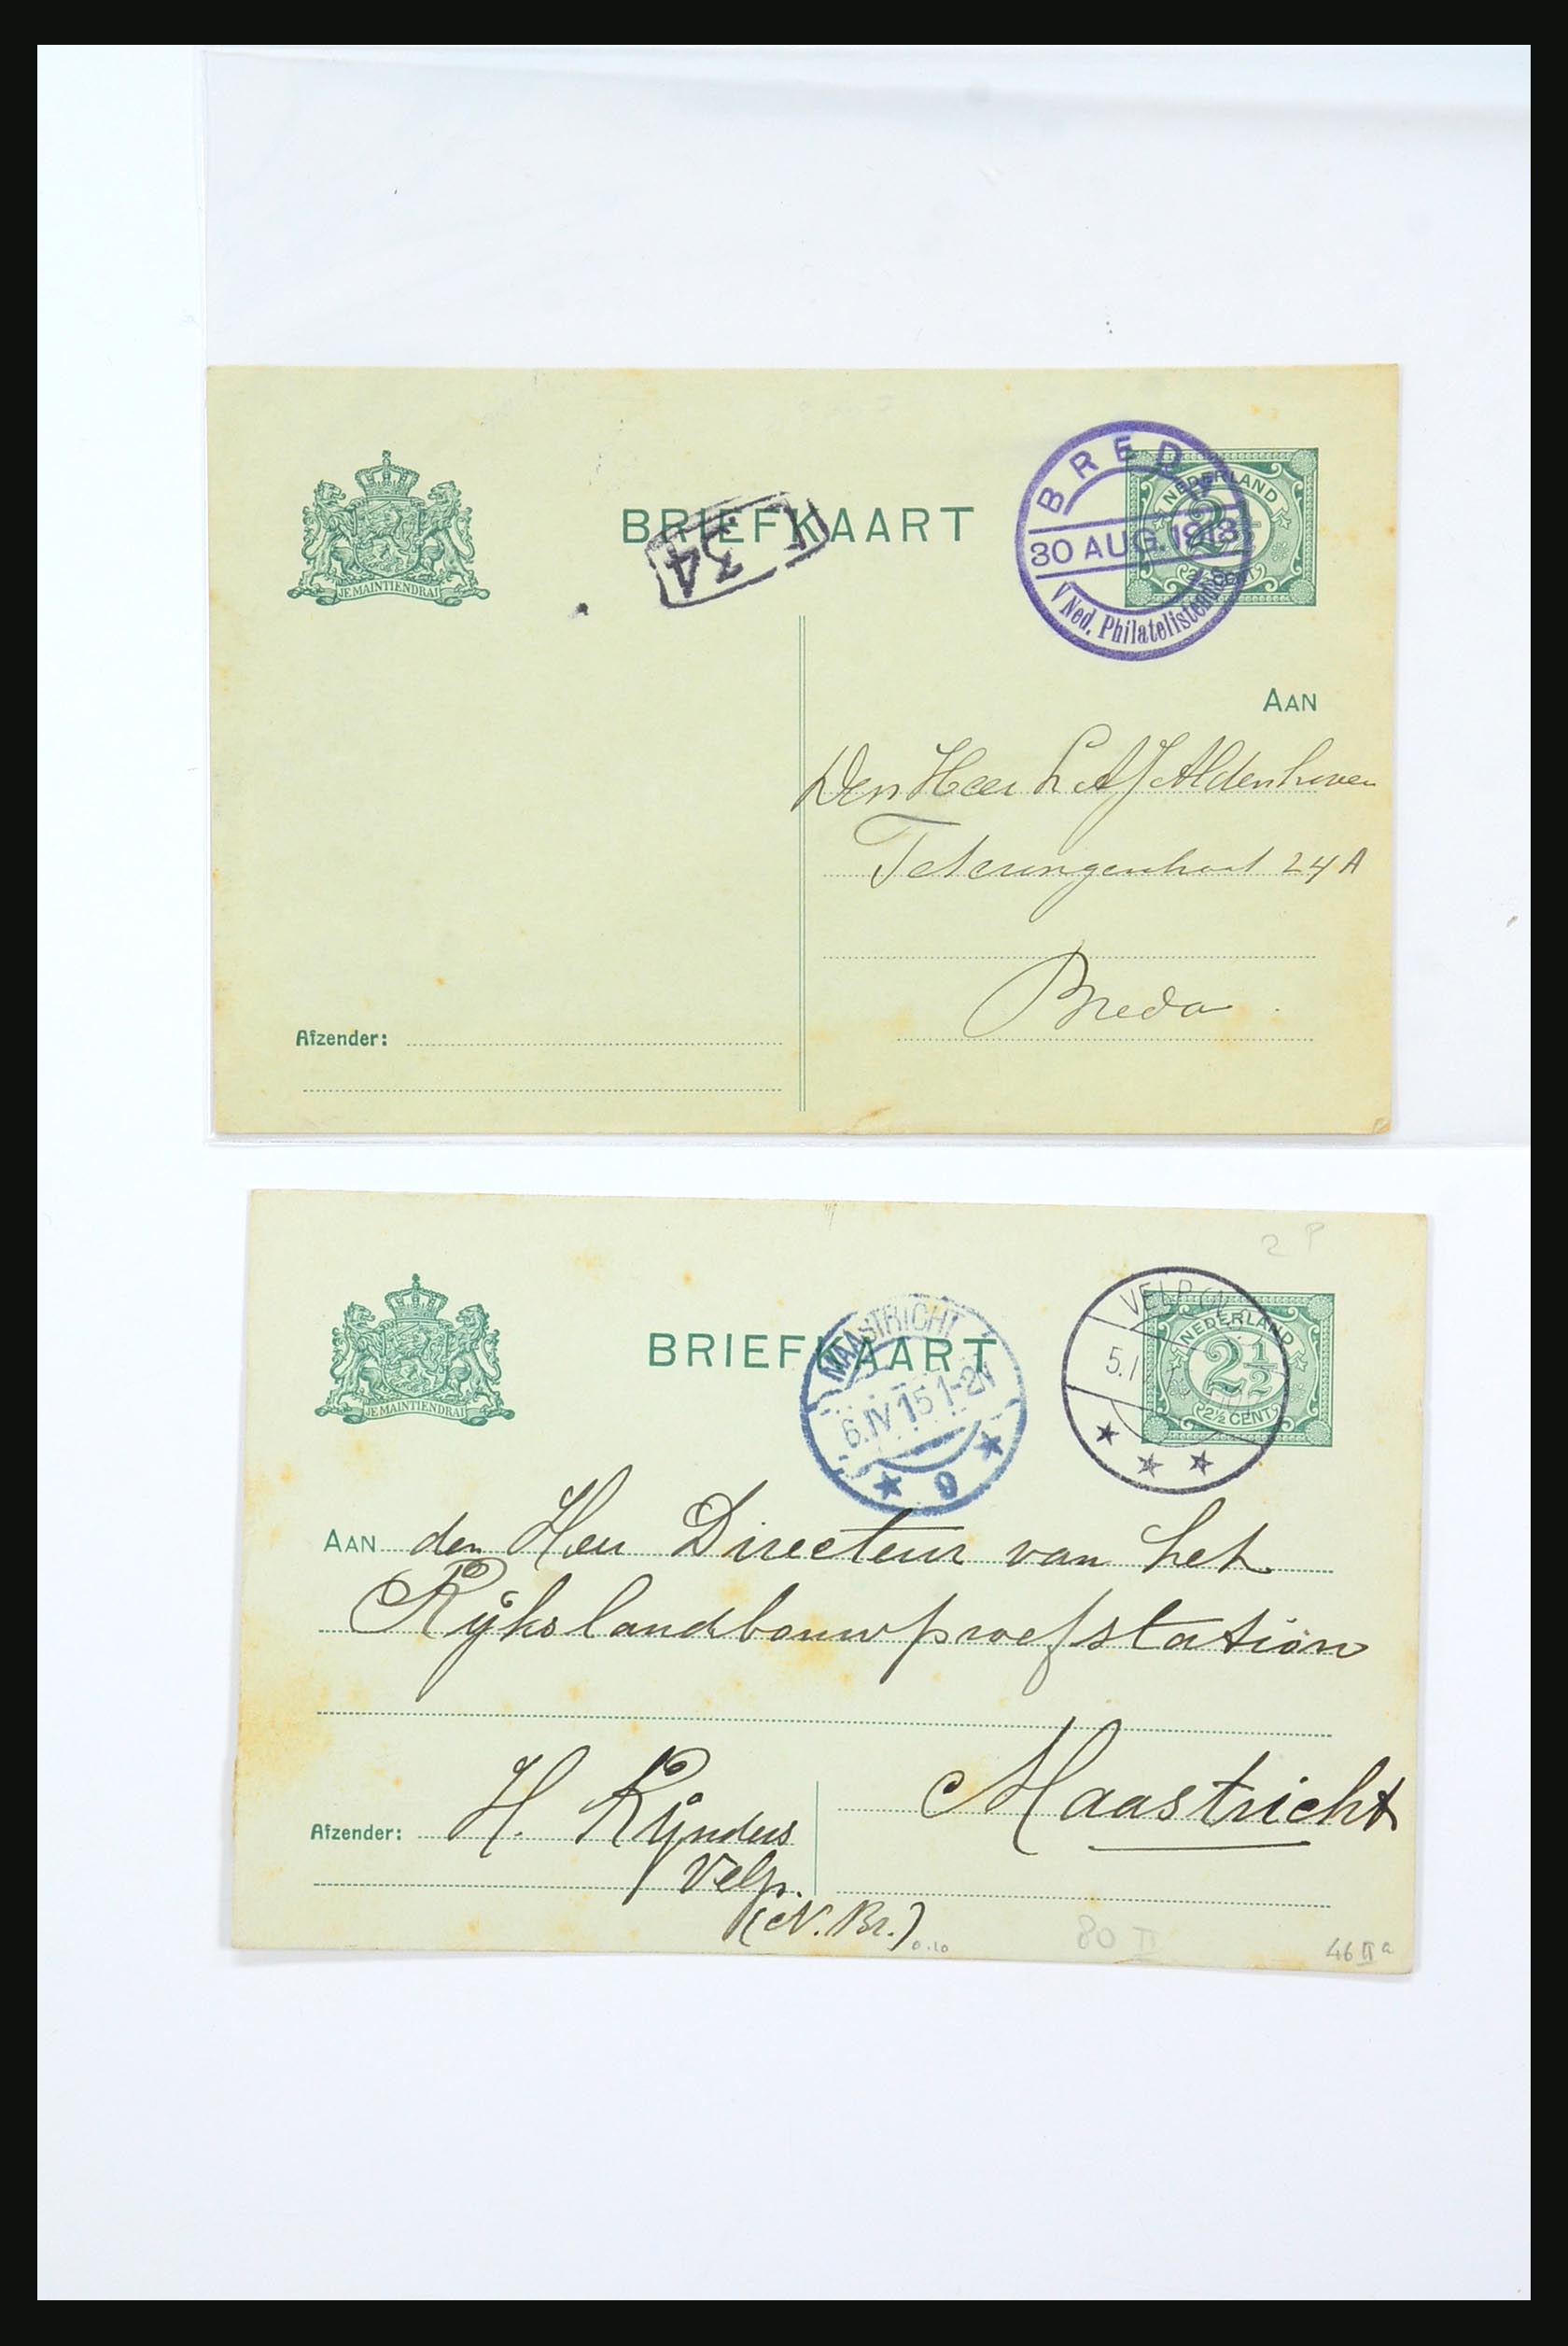 BRIEFKAART
JE MAINTIENDRAI
34
BREDA
30 AUG. 1913
V Ned. Philatelistendag
NEDERLAND
2½ CENT
AAN
Den Heer L A J Aldenhoven
Teteringenstraat 24 A
Breda.
Afzender:
2 P
BRIEFKAART
JE MAINTIENDRAI
MAASTRICHT
6.IV.15 1-2N
9
VELP
5.I
NEDERLAND
2½
2½ CENT
AAN den Heer Directeur van het
Rijkslandbouwproefstation
Maastricht
Afzender: H. Rijnders
Velp.
(N. Br.)
0.10
80 II
46 II a